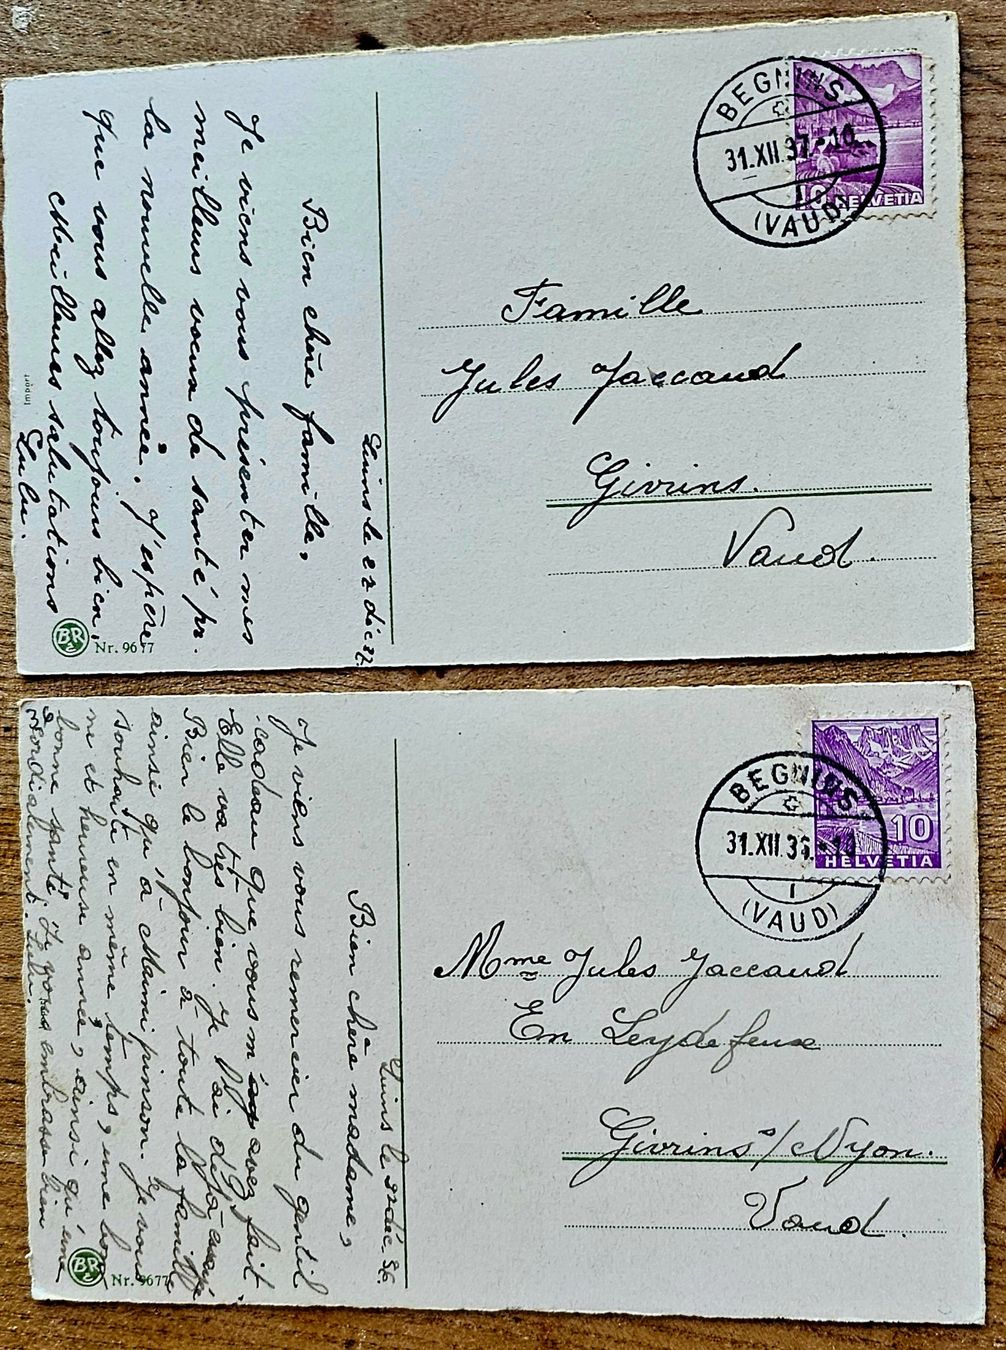 BEGNINS
31.XII.37.-10
(VAUD)
10 HELVETIA
Famille
Jules Jaccaud
Givrins.
Vaud.
Luins le déc 37.
Bien chère famille,
Je viens vous présenter mes
meilleurs voeux de santé pr.
la nouvelle année. J'espère
que vous allez toujours bien.
Meilleures salutations
Lulu.
Impoer
BR
Nr. 9677
BEGNINS
31.XII.36.-10
(VAUD)
10
HELVETIA
Mme Jules Jaccaud
En Leydefeux
Givrins s/Nyon.
Vaud.
Luins le déc. 36.
Bien chère madame,
Je viens vous remercier du gentil
cadeau que vous m'avez fait
Elle va très bien. Je ai déjà
Bien le bonjour à toute la famille
ainsi qu'à Maimi pinson. Je vous
souhaite en même temps, une bon
ne et heureuse année, ainsi qu'une
bonne santé. Je vous embrasse bien
cordialement. Lulu.
BR
Nr. 9677